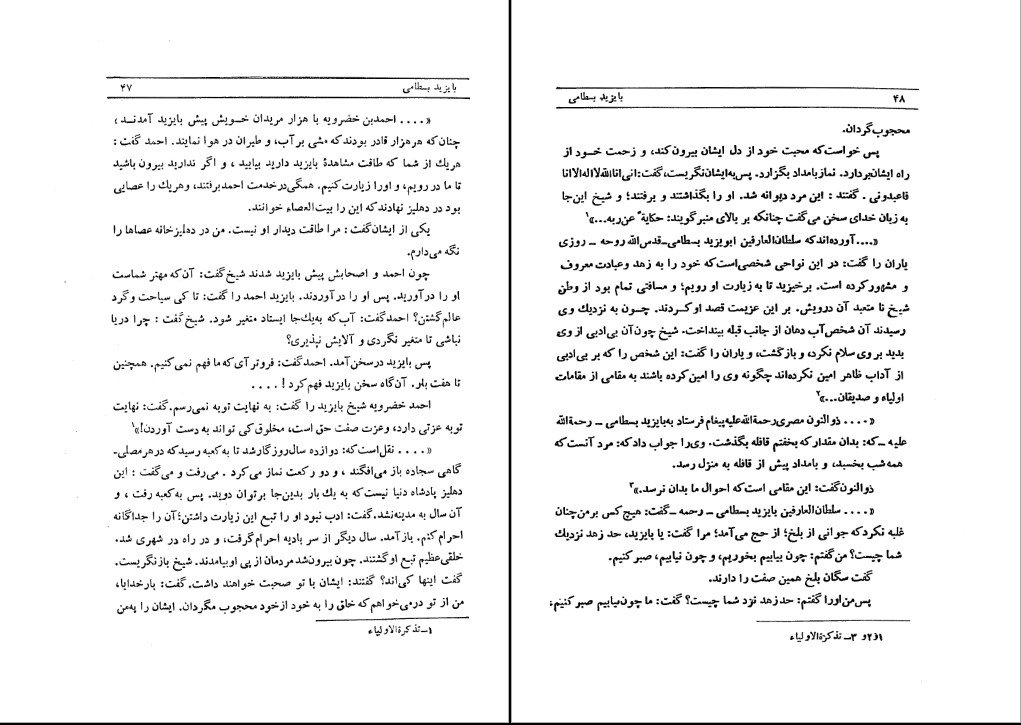 بایزید بسطامی ۴۷
«.... احمدبن خضرویه با هزار مریدان خـویش پیش بایزید آمدنـد ؛
چنان که هر هزار قادر بودند که مشی بر آب، و طیران در هوا نمایند. احمد گفت :
هریك از شما که طاقت مشاهدهٔ بایزید دارید بیایید ، و اگر ندارید بیرون باشید
تا ما در رویم، و اورا زیارت کنیم. همگی در خدمت احمد برفتند، و هریك را عصایی
بود در دهلیز نهادند که این را بیت‌العصاء خوانند.
یکی از ایشان گفت : مرا طاقت دیدار او نیست. من در دهلیزخانه عصاها را
نگه می‌دارم.
چون احمد و اصحابش پیش بایزید شدند شیخ گفت: آن که مهتر شماست
او را درآورید. پس او را درآوردند. بایزید احمد را گفت: تا کی سیاحت و گرد
عالم گشتن؟ احمد گفت: آب که به‌یك‌جا ایستاد متغیر شود. شیخ گفت : چرا دریا
نباشی تا متغیر نگردی و آلایش نپذیری؟
پس بایزید درسخن آمد. احمد گفت: فروتر آی که ما فهم نمی‌کنیم. همچنین
تا هفت بار. آن‌گاه سخن بایزید فهم کرد ! ....
احمد خضرویه شیخ بایزید را گفت: به نهایت توبه نمی‌رسم. گفت: نهایت
توبه عزتی دارد، وعزت صفت حق است، مخلوق کی تواند به دست آوردن!»۱
«.... نقل است که: دوازده سال روزگار شد تا به کعبه رسید که در هر مصلی‌ـ
گاهی سجاده باز می‌افگند ، و دو رکعت نماز می کرد . می‌رفت و می‌گفت : این
دهلیز پادشاه دنیا نیست که به یك بار بدین‌جا بر توان دوید. پس به کعبه رفت ، و
آن سال به مدینه نشد. گفت: ادب نبود او را تبع این زیارت داشتن؛ آن را جداگانه
احرام کنم. باز آمد. سال دیگر از سر بادیه احرام گرفت، و در راه در شهری شد.
خلقی عظیم تبع او گشتند. چون بیرون شد مردمان از پی او بیامدند. شیخ بازنگریست.
گفت اینها کی‌اند؟ گفتند: ایشان با تو صحبت خواهند داشت. گفت: بارخدایا،
من از تو درمی‌خواهم که خلق را به خود از خود محجوب مگردان. ایشان را به‌من
۱ـ تذکرة‌الاولیاء
۴۸ بایزید بسطامی
محجوب گردان.
پس خواست که محبت خود از دل ایشان بیرون کند، و زحمت خـود از
راه ایشان بردارد. نماز بامداد بگزارد. پس به‌ایشان نگریست، گفت: انی اناالله لا اله الا انا
فاعبدونی . گفتند : این مرد دیوانه شد. او را بگذاشتند و برفتند؛ و شیخ این‌جا
به زبان خدای سخن می‌گفت چنانکه بر بالای منبر گویند: حکایةً عن ربه...»۱
«....آورده‌اند که سلطان‌العارفین ابویزید بسطامی‌ـ قدس‌الله روحه ـ روزی
یاران را گفت: در این نواحی شخصی‌است که خود را به زهد وعبادت معروف
و مشهور کرده است. برخیزید تا به زیارت او رویم؛ و مسافتی تمام بود از وطن
شیخ تا متعبد آن درویش. بر این عزیمت قصد او کـردند. چـون به نزدیك وی
رسیدند آن شخص آب دهان از جانب قبله بینداخت. شیخ چون آن بی‌ادبی از وی
بدید بر وی سلام نکرد، و بازگشت، و یاران را گفت: این شخص را که بر بی‌ادبی
از آداب ظاهر امین نکرده‌اند چگونه وی را امین کرده باشند به مقامی از مقامات
اولیاء و صدیقان...»۲
«.... ذوالنون مصری رحمة‌الله‌علیه پیغام فرستاد به‌بایزید بسطامی ـ رحمة‌الله
علیه ـ که: بدان مقدار که بخفتم قافله بگذشت. وی‌را جواب داد که: مرد آنست که
همه شب بخسبد، و بامداد پیش از قافله به منزل رسد.
ذوالنون گفت: این مقامی است که احوال ما بدان نرسد.»۳
«.... سلطان‌العارفین بایزید بسطامی ـ رحمه ـ گفت: هیچ کس بر من چنان
غلبه نکرد که جوانی از بلخ؛ از حج می‌آمد؛ مرا گفت: یا بایزید، حد زهد نزدیك
شما چیست؟ من گفتم: چون بیابیم بخوریم، و چون نیابیم، صبر کنیم.
گفت سگان بلخ همین صفت را دارند.
پس من اورا گفتم: حد زهد نزد شما چیست؟ گفت: ما چون نیابیم صبر کنیم؛
۱و۲و ۳ـ تذکرة‌الاولیاء